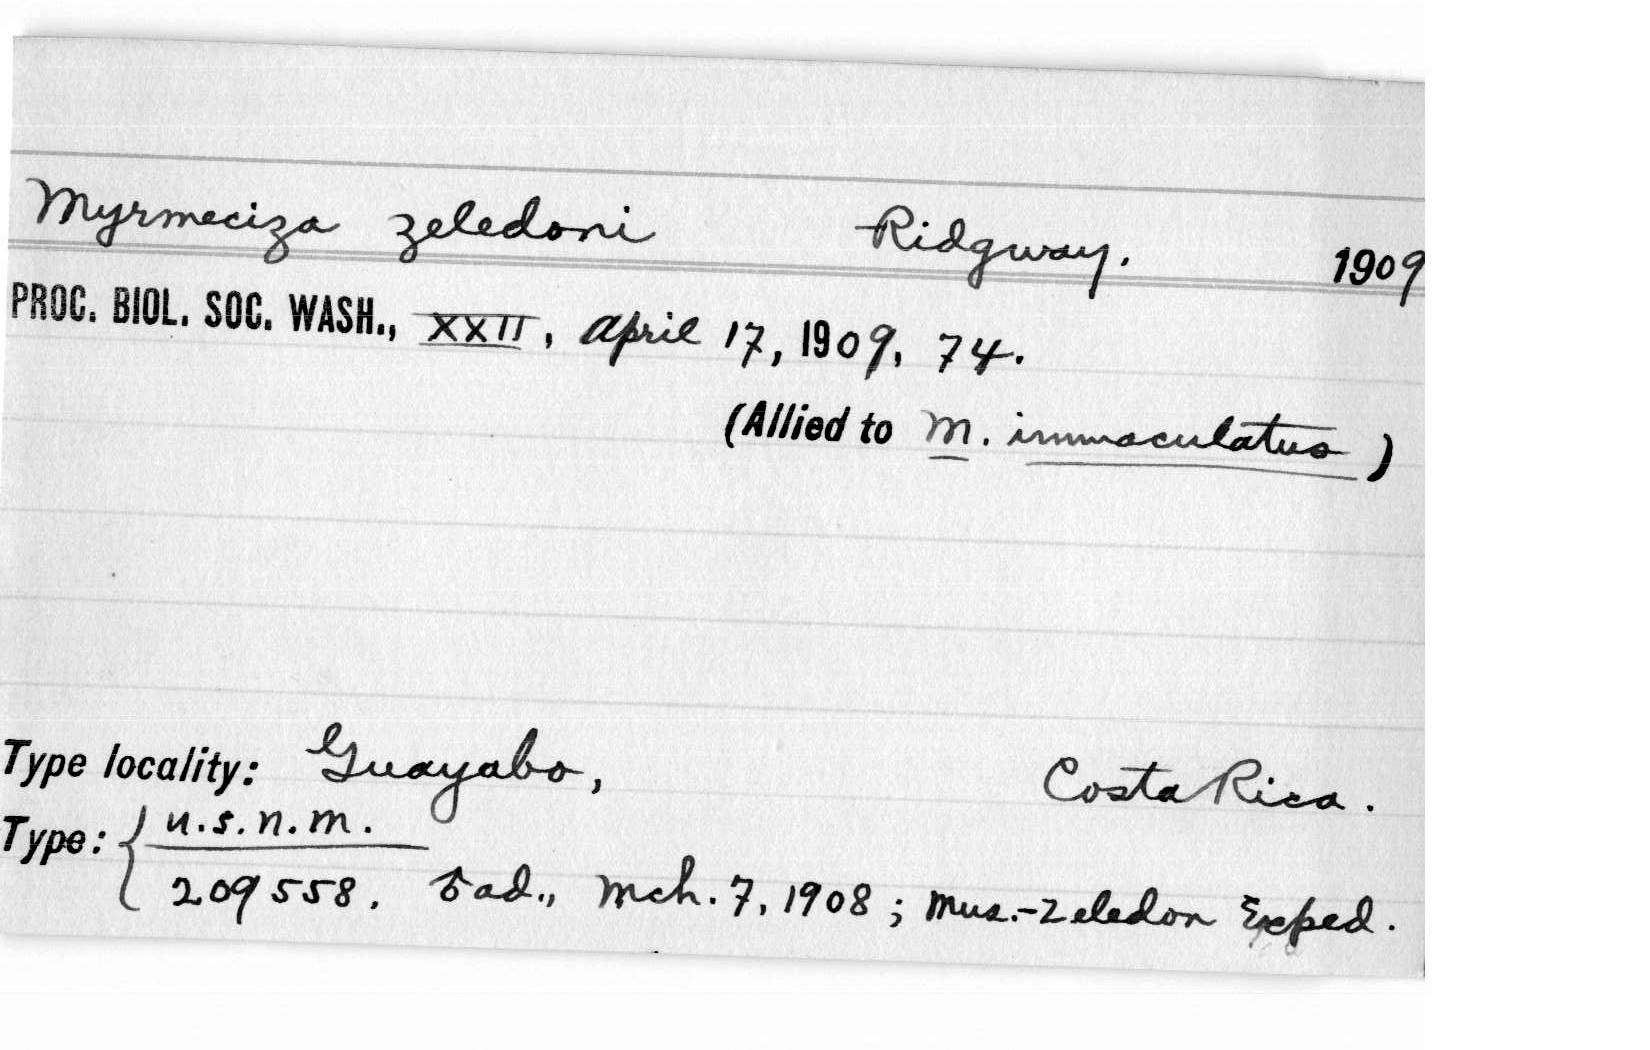 Myrmeciza zeledoni Ridgway. 1909
PROC. BIOL. SOC. WASH., XXII, April 17, 1909, 74.
(Allied to M. immaculatus)
Type locality: Guayabo, Costa Rica.
Type: { U.S.N.M.
209558. ♂ ad., Mch. 7, 1908; Mus.-Zeledon Exped.